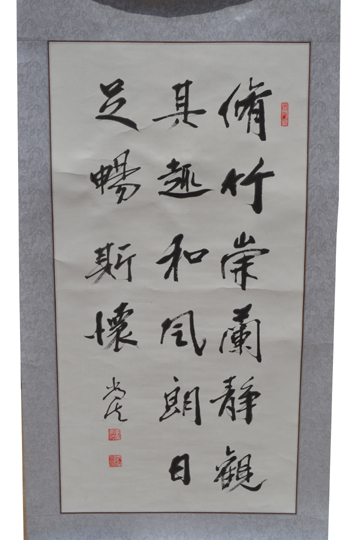 脩竹崇蘭静觀
其趣和風朗日
足暢斯懷